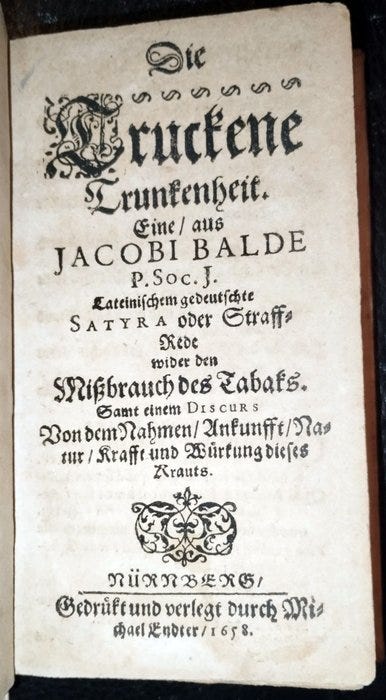 Die
Truckene
Trunkenheit.
Eine / aus
JACOBI BALDE
P. SOC. J.
Lateinischem gedeutschte
SATYRA oder Straff-
Rede
wider den
Mißbrauch des Tabaks.
Samt einem DISCURS
Von dem Nahmen / Ankunfft / Na-
tur / Krafft und Würkung dieses
Krauts.
NÜRNBERG /
Gedrükt und verlegt durch Mi-
chael Endter / 1658.